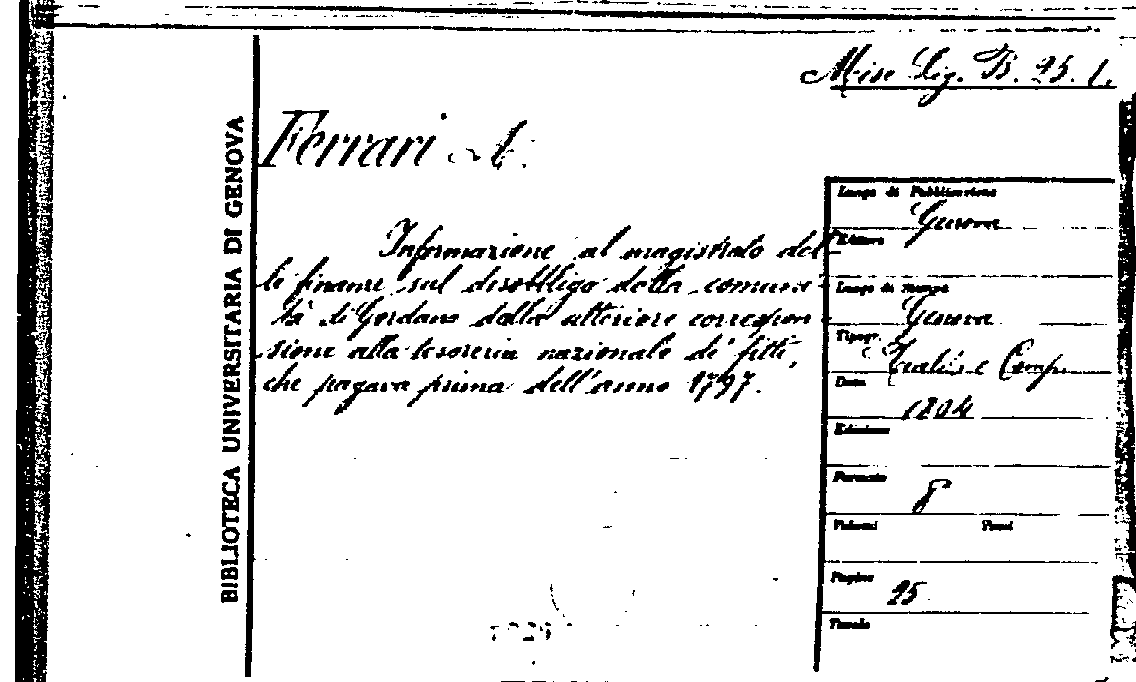 Misc Lig. B. 25. 1.
BIBLIOTECA UNIVERSITARIA DI GENOVA
Ferrari A.
Informazione al magistrato del
le finanze sul disobbligo della comuni-
tà di Gordano dalla ulteriore correspon-
sione alla tesoreria nazionale di fitti,
che pagava prima dell'anno 1797.
Luogo di Pubblicazione
Genova
Editore
Luogo di stampa
Genova
Tipogr.
e Comp.
Data
1804
Edizione
Formato
8
Volumi Tomi
Pagine
25
Tavole